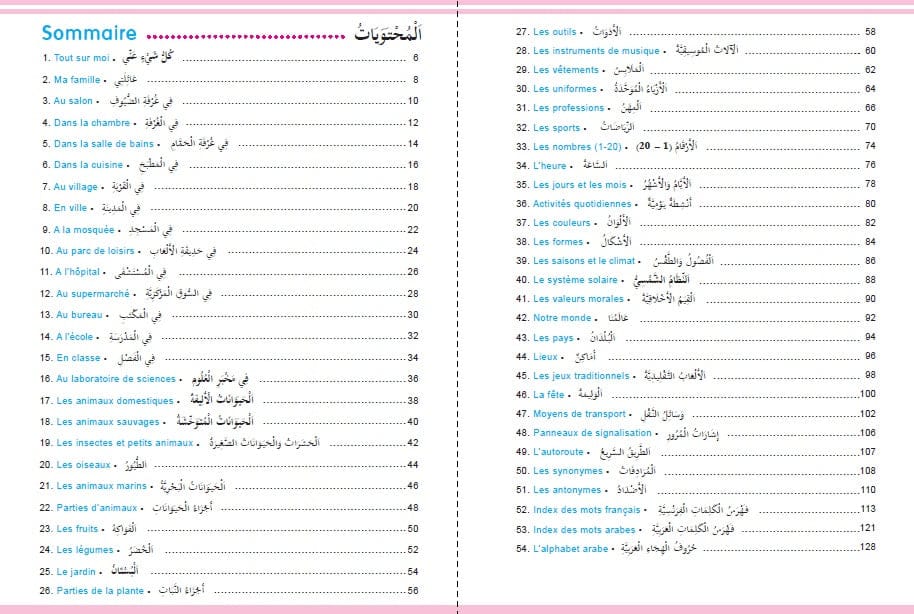 Sommaire ........ اَلْمُحْتَوَيَاتُ
1. Tout sur moi • كُلُّ شَيْءٍ عَنِّي ........ 6
2. Ma famille • عَائِلَتِي ........ 8
3. Au salon • فِي غُرْفَةِ الضُّيُوفِ ........ 10
4. Dans la chambre • فِي الْغُرْفَةِ ........ 12
5. Dans la salle de bains • فِي غُرْفَةِ الحَمَّامِ ........ 14
6. Dans la cuisine • فِي الْمَطْبَخِ ........ 16
7. Au village • فِي الْقَرْيَةِ ........ 18
8. En ville • فِي الْمَدِينَةِ ........ 20
9. A la mosquée • فِي الْمَسْجِدِ ........ 22
10. Au parc de loisirs • فِي حَدِيقَةِ الْأَلْعَابِ ........ 24
11. A l'hôpital • فِي الْمُسْتَشْفَى ........ 26
12. Au supermarché • فِي السُّوقِ الْمَرْكَزِيَّةِ ........ 28
13. Au bureau • فِي الْمَكْتَبِ ........ 30
14. A l'école • فِي الْمَدْرَسَةِ ........ 32
15. En classe • فِي الْفَصْلِ ........ 34
16. Au laboratoire de sciences • فِي مَخْبَرِ الْعُلُومِ ........ 36
17. Les animaux domestiques • الْحَيَوَانَاتُ الْأَلِيفَةُ ........ 38
18. Les animaux sauvages • الْحَيَوَانَاتُ الْمُتَوَحِّشَةُ ........ 40
19. Les insectes et petits animaux • الْحَشَرَاتُ وَالْحَيَوَانَاتُ الصَّغِيرَةُ ........ 42
20. Les oiseaux • الطُّيُورُ ........ 44
21. Les animaux marins • الْحَيَوَانَاتُ الْبَحْرِيَّةُ ........ 46
22. Parties d'animaux • أَجْزَاءُ الْحَيَوَانَاتِ ........ 48
23. Les fruits • الْفَوَاكِهُ ........ 50
24. Les légumes • الْخُضَرُ ........ 52
25. Le jardin • الْبُسْتَانُ ........ 54
26. Parties de la plante • أَجْزَاءُ النَّبَاتِ ........ 56
27. Les outils • الْأَدَوَاتُ ........ 58
28. Les instruments de musique • الْآلَاتُ الْمُوسِيقِيَّةُ ........ 60
29. Les vêtements • الْمَلَابِسُ ........ 62
30. Les uniformes • الْأَزْيَاءُ الْمُوَحَّدَةُ ........ 64
31. Les professions • الْمِهَنُ ........ 66
32. Les sports • الرِّيَاضَاتُ ........ 70
33. Les nombres (1-20) • الْأَرْقَامُ (1 – 20) ........ 74
34. L'heure • السَّاعَةُ ........ 76
35. Les jours et les mois • الْأَيَّامُ وَالْأَشْهُرُ ........ 78
36. Activités quotidiennes • أَنْشِطَةٌ يَوْمِيَّةٌ ........ 80
37. Les couleurs • الْأَلْوَانُ ........ 82
38. Les formes • الْأَشْكَالُ ........ 84
39. Les saisons et le climat • الْفُصُولُ وَالطَّقْسُ ........ 86
40. Le système solaire • اَلنِّظَامُ الشَّمْسِيُّ ........ 88
41. Les valeurs morales • الْقِيَمُ الْأَخْلَاقِيَّةُ ........ 90
42. Notre monde • عَالَمُنَا ........ 92
43. Les pays • الْبُلْدَانُ ........ 94
44. Lieux • أَمَاكِنُ ........ 96
45. Les jeux traditionnels • الْأَلْعَابُ التَّقْلِيدِيَّةُ ........ 98
46. La fête • الْوَلِيمَةُ ........ 100
47. Moyens de transport • وَسَائِلُ النَّقْلِ ........ 102
48. Panneaux de signalisation • إِشَارَاتُ الْمُرُورِ ........ 106
49. L'autoroute • الطَّرِيقُ السَّرِيعُ ........ 107
50. Les synonymes • الْمُرَادِفَاتُ ........ 108
51. Les antonymes • الْأَضْدَادُ ........ 110
52. Index des mots français • فَهْرَسُ الْكَلِمَاتِ الْفَرَنْسِيَّةِ ........ 113
53. Index des mots arabes • فَهْرَسُ الْكَلِمَاتِ الْعَرَبِيَّةِ ........ 121
54. L'alphabet arabe • حُرُوفُ الْهِجَاءِ الْعَرَبِيَّةِ ........ 128